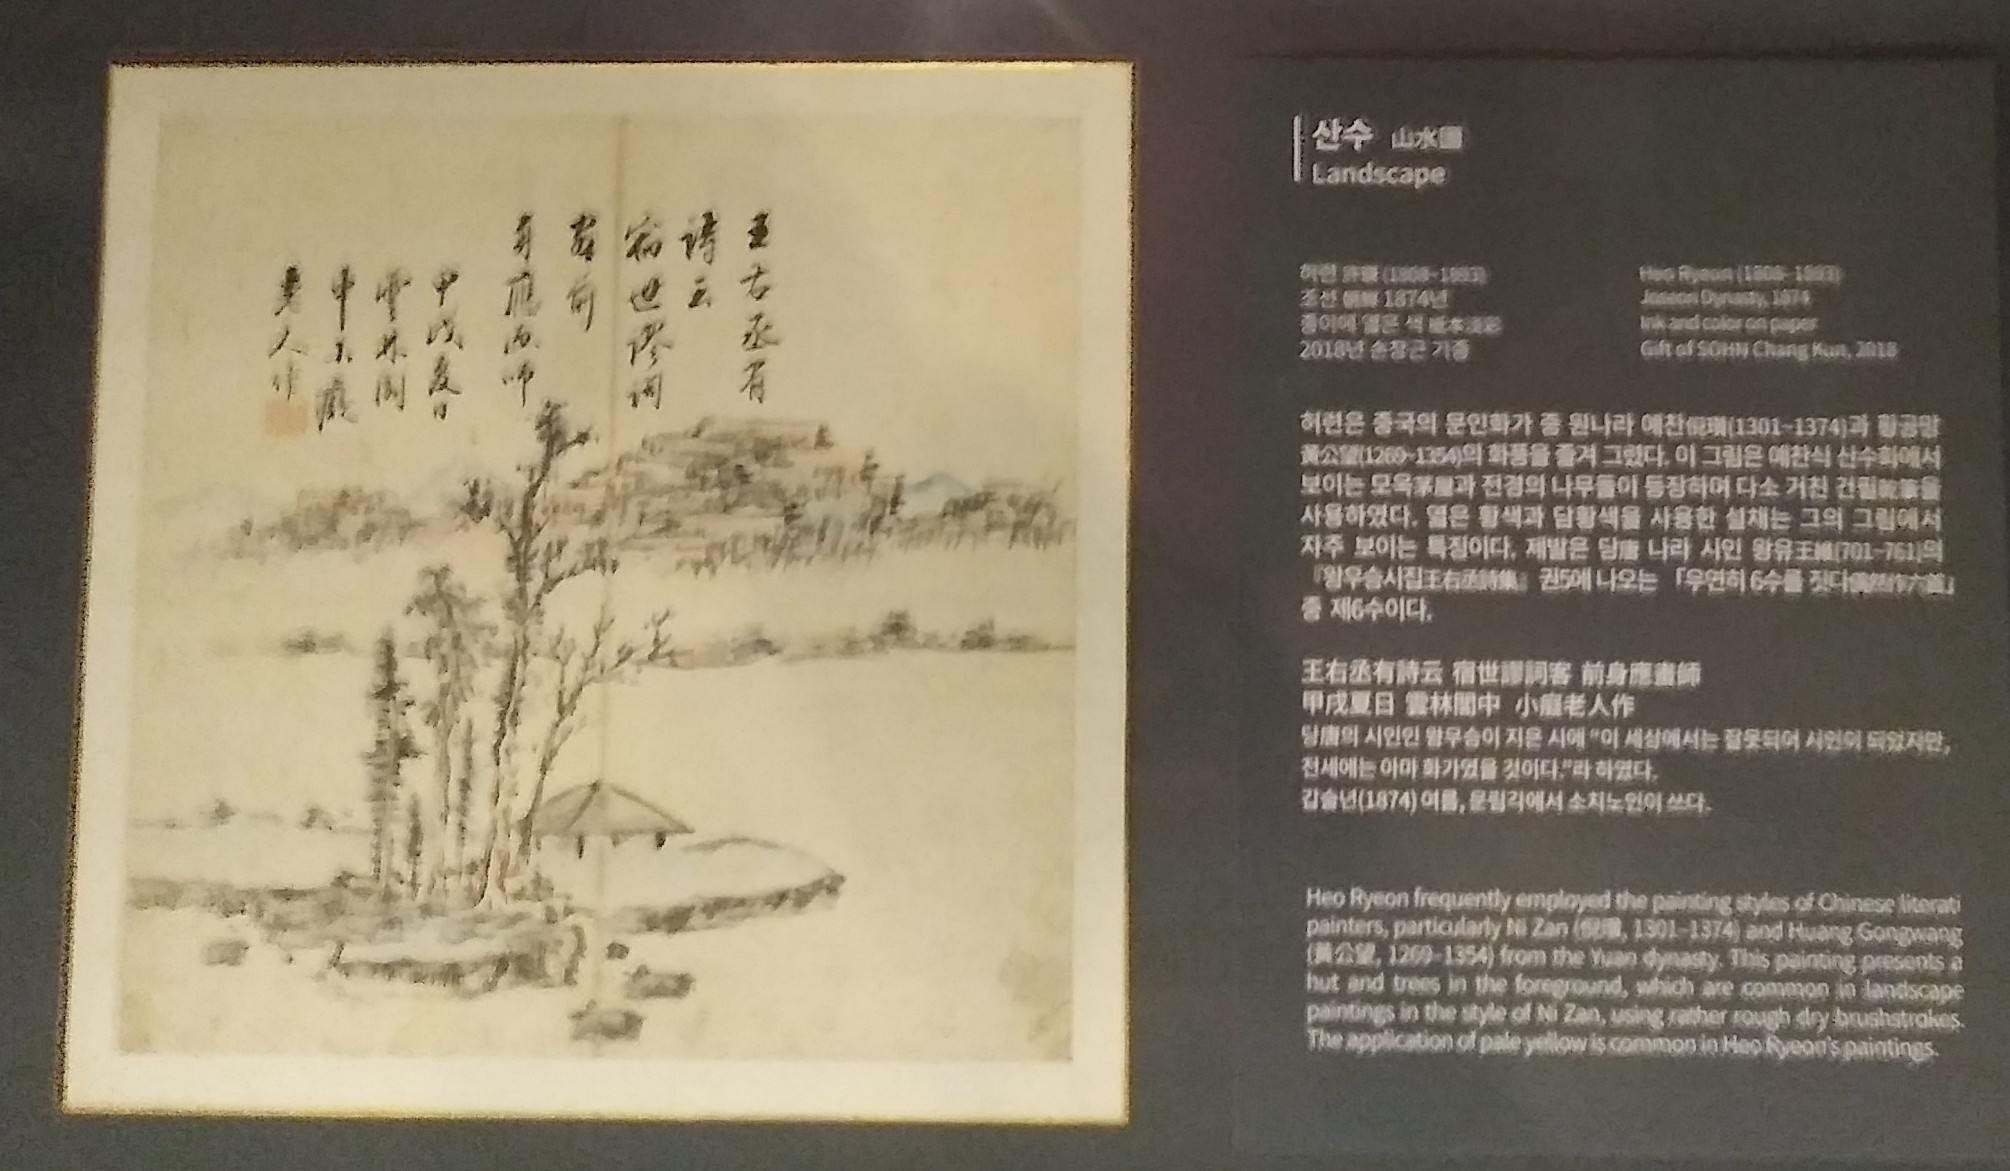 王右丞有
詩云
宿世謬詞
客前
身應画師
甲戌夏日
雲林閣
中小癡
老人作
산수 山水圖
Landscape
허련 許鍊 (1808~1893)
조선 朝鮮 1874년
종이에 엷은 색 紙本淡彩
2018년 손창근 기증
Heo Ryeon (1808~1893)
Joseon Dynasty, 1874
Ink and color on paper
Gift of SOHN Chang Kun, 2018
허련은 중국의 문인화가 중 원나라 예찬倪瓚(1301~1374)과 황공망
黃公望(1269~1354)의 화풍을 즐겨 그렸다. 이 그림은 예찬식 산수화에서
보이는 모옥茅屋과 전경의 나무들이 등장하며 다소 거친 건필乾筆을
사용하였다. 옅은 황색과 담황색을 사용한 설채는 그의 그림에서
자주 보이는 특징이다. 제발은 당唐 나라 시인 왕유王維(701~761)의
『왕우승시집王右丞詩集』 권5에 나오는 「우연히 6수를 짓다偶然作六首」
중 제6수이다.
王右丞有詩云 宿世謬詞客 前身應畫師
甲戌夏日 雲林閣中 小癡老人作
당唐의 시인인 왕우승이 지은 시에 "이 세상에서는 잘못되어 시인이 되었지만,
전세에는 아마 화가였을 것이다."라 하였다.
갑술년(1874) 여름, 운림각에서 소치노인이 쓰다.
Heo Ryeon frequently employed the painting styles of Chinese literati
painters, particularly Ni Zan (倪瓚, 1301~1374) and Huang Gongwang
(黃公望, 1269~1354) from the Yuan dynasty. This painting presents a
hut and trees in the foreground, which are common in landscape
paintings in the style of Ni Zan, using rather rough dry brushstrokes.
The application of pale yellow is common in Heo Ryeon's paintings.